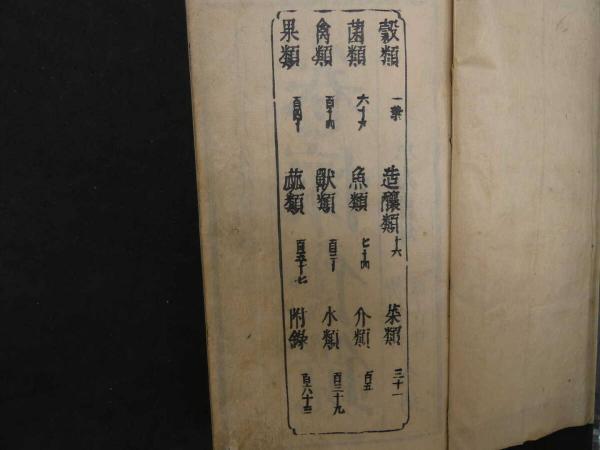 穀類 一葉 造釀類 十六 菜類 三十一
菌類 六十 魚類 七十四 介類 百五
禽類 百十四 獸類 百三十 水類 百三十九
果類 百四十 蓏類 百五十七 附錄 百六十三